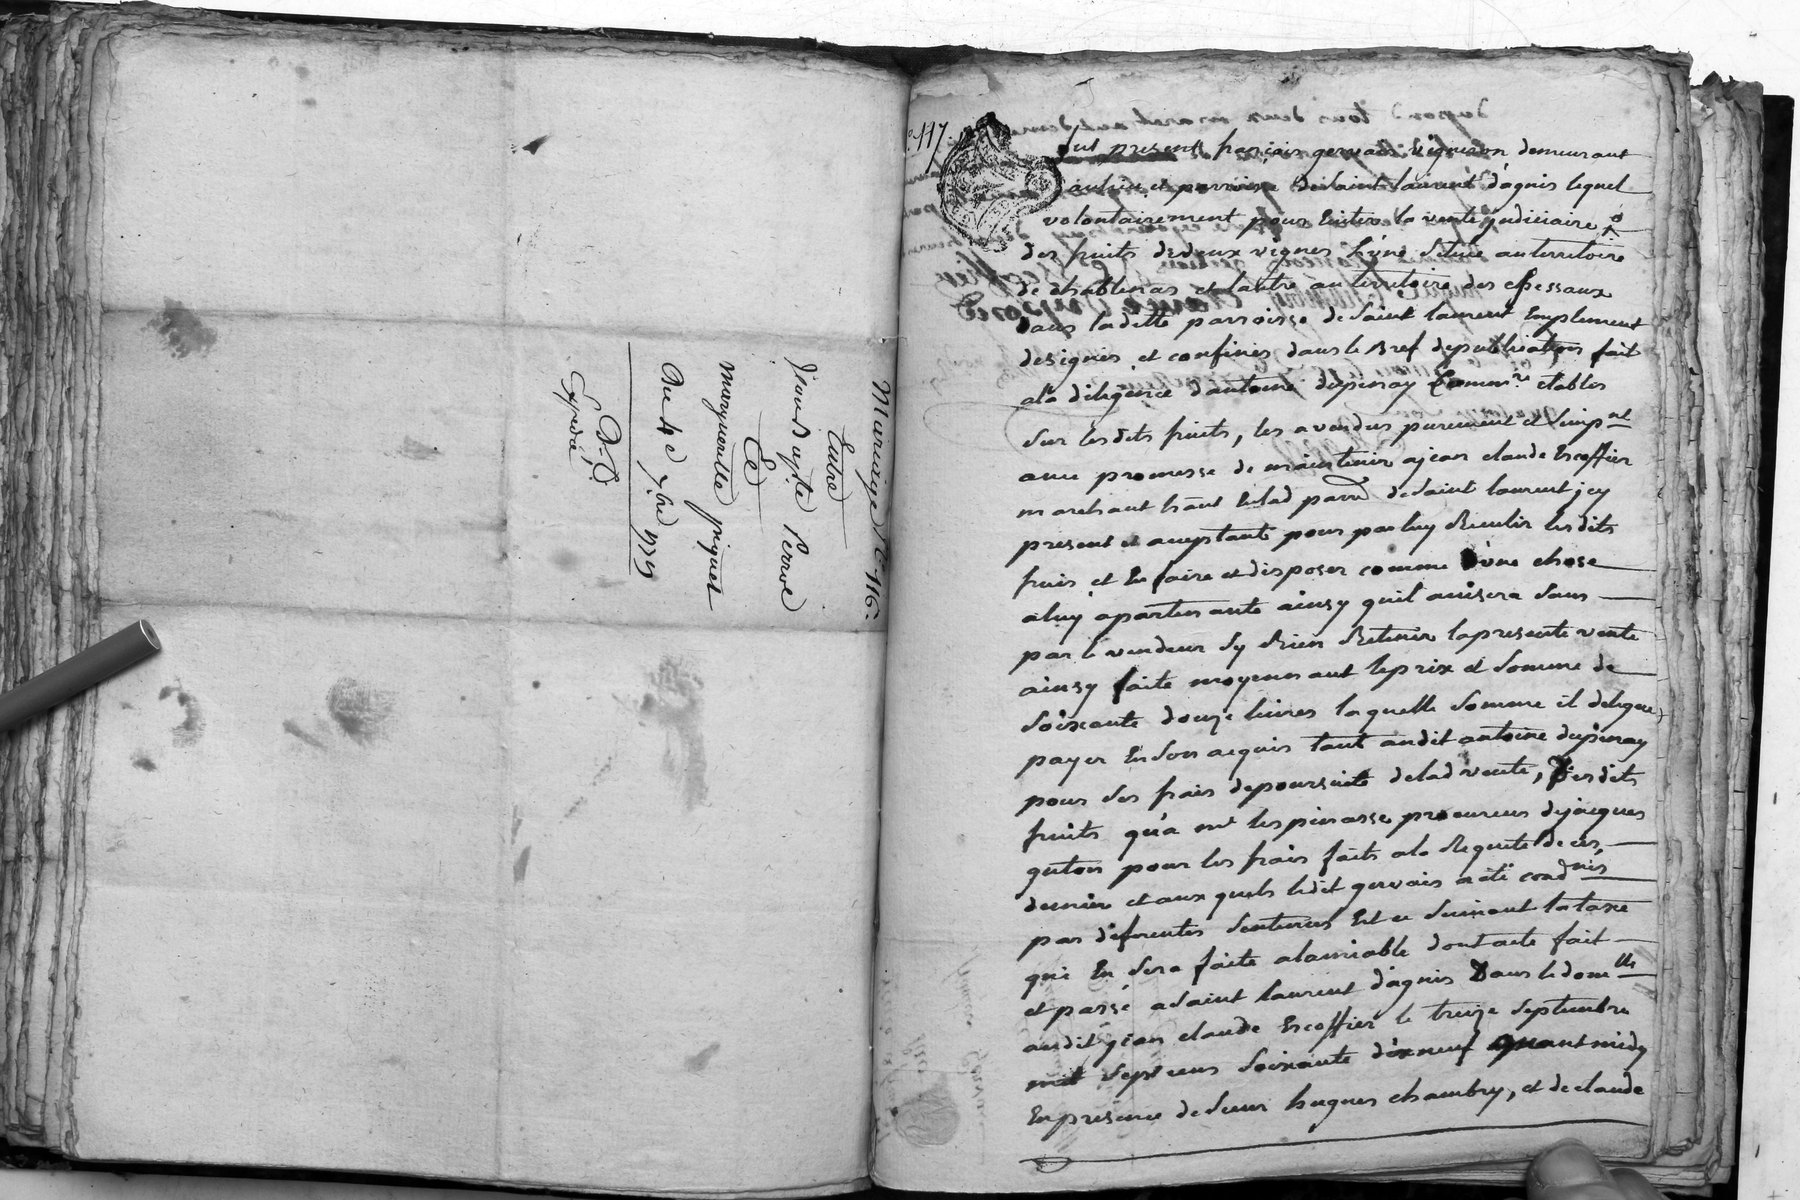 Mariage N.° 116.
Entre
Et
margueritte piguet
Du 4e 7bre 1779
Expedié
117.
Fut present françois gervais vigneron demeurant
au lieu et parroisse de saint laurent d'agnis lequel
volontairement pour Eviter la vente judiciaire
des fruits de deux vignes l'une située au territoire
de et l'autre au territoire des Essessaux
dans laditte parroisse de saint laurent Emplement
designés et confinés dans le Bref de publication fait
a la diligence d'antoine dupinay Commre etabli
sur lesdits fruits, les a vendus purement et simpnt
avec promesse de maintenir a jean claude Escoffier
marchant hant lelad parre de saint laurent jcy
present et acceptant pour par luy Recueulir lesdits
fruis et En faire et disposer comme d'une chose
a luy apartenante ainsy quil avisera sans
par le vendeur sy Rien Retenir la presente vente
ainsy faite moyennant le prix et somme de
soixante douze livres laquelle somme il delegue
payer En son acquis tant audit antoine dupinay
pour ses frais de poursuite de lad vente, desdits
fruits qu'a me lespinasse procureur de jacques
guiton pour les frais faits a la Requete de ces
dernier et aux quels ledit gervais a été condnés
par diferentes sentences Et ce suivant la taxe
qui En sera faite alamiable dont acte fait
et passé a saint laurent d'agnis Dans le domlle
audit jean claude Escoffier le treize septembre
mil sept cens soixante dixneuf avant midy
En presence de sieur hugues chambry, et de claude